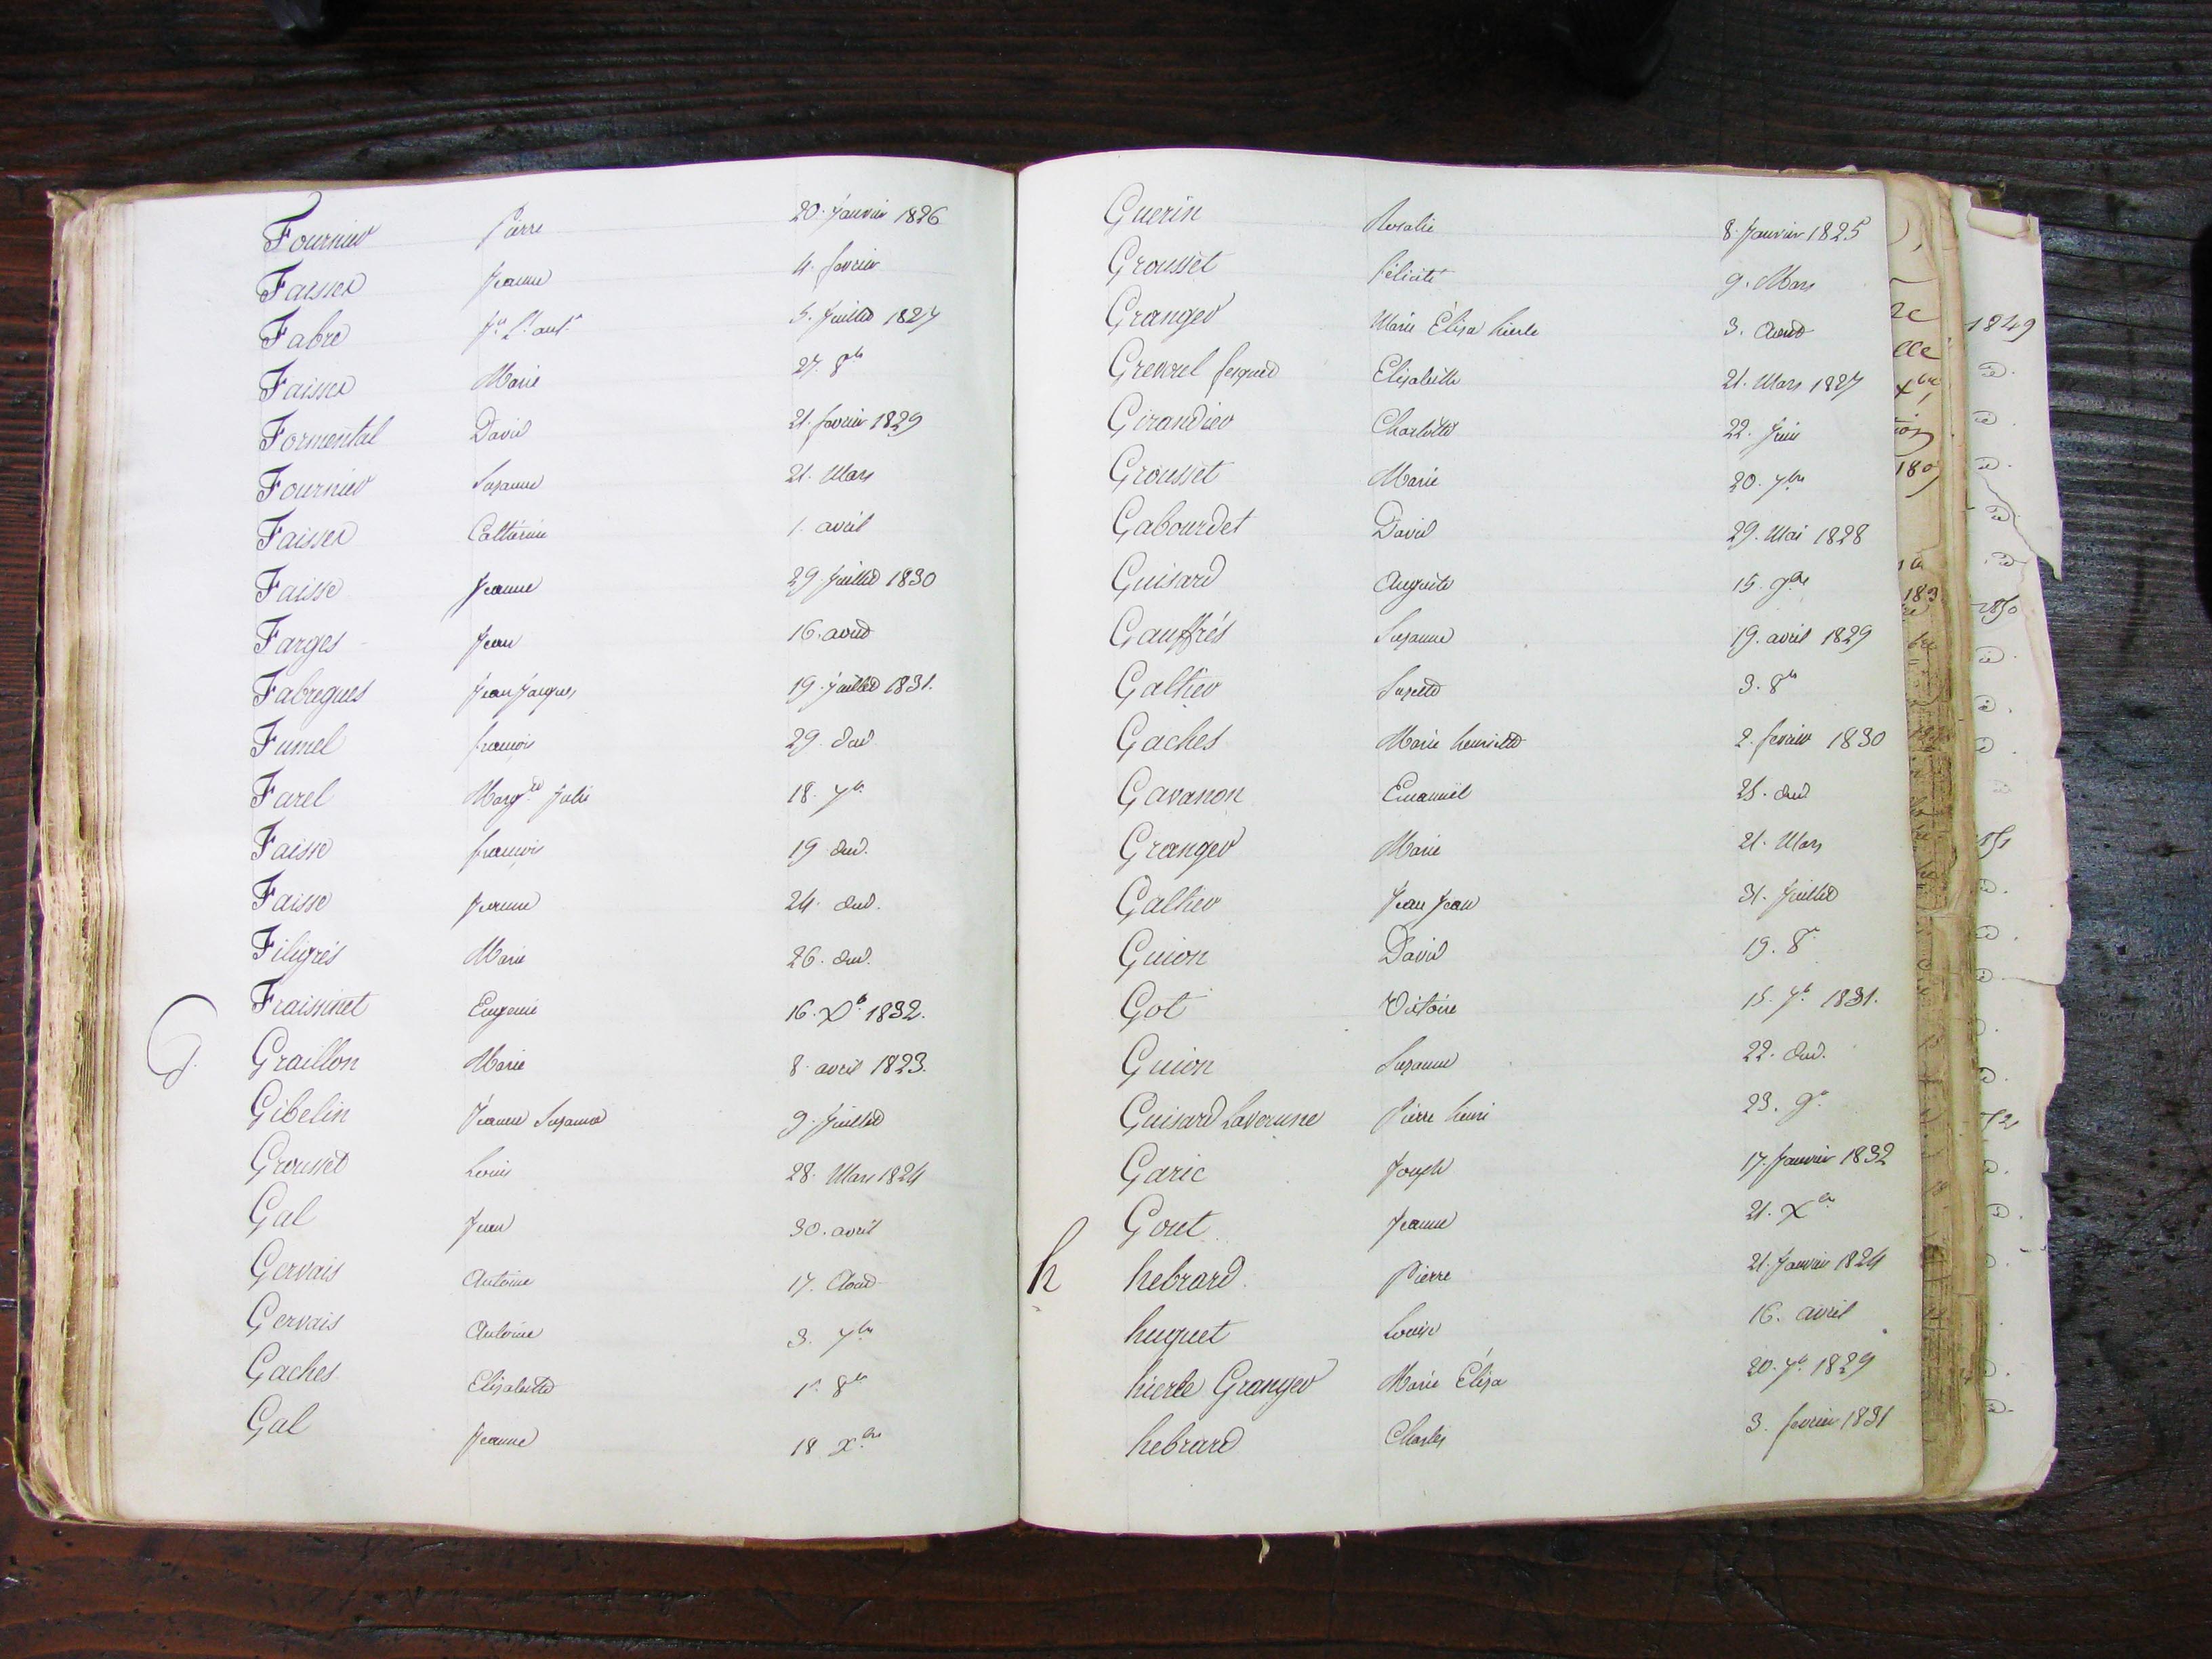 Fournier Pierre 20. Janvier 1826
Faisses Jeanne 4. fevrier
Fabre Jn Ls ant. 5. Juillet 1827
Faisses Marie 27. 8bre
Formental David 21. fevrier 1829
Fournier Suzanne 21. Mars
Faisses Catherine 1. avril
Faisse Jeanne 29. Juillet 1830
Farges Jean 16. aout
Fabregues Jean Jacques 19. Juillet 1831.
Fumel françois 29. dud.
Farel Margte Julie 18. 7b.
Faisse françois 19 dud.
Faisse Jeanne 24. dud.
Filigrés Marie 26. dud.
Fraissinet Eugenie 16. Xb. 1832.
G. Graillon Marie 8. avril 1823.
Gibelin Jeanne Suzanne 9. Juillet
Grousset Louis 28. Mars 1824
Gal Jean 30. avril
Gervais Antoine 17. Aout
Gervais Antoine 3. 7bre
Gaches Elisabeth 1r. 8b
Gal Jeanne 18 Xbre
Guerin Rosalie 8. Janvier 1825
Grousset félicité 9. Mars
Granger Marie Élisa hierle 3. Aout
Elisabeth 21. Mars 1827
Girandier Charlotte 22. Juin
Grousset Marie 20. 7bre
Gabourdet David 29. Mai 1828
Guisard Auguste 15. 9bre
Gauffrés Suzanne 19. avril 1829
Galtier Suzette 3. 8b
Gaches Marie henriette 2. fevrier 1830
Gavanon Emanuël 25. dud.
Granger Marie 21. Mars
Galtier Jean Jean 31. Juillet
Guion David 19. 8r
Got Victoire 15. 7b. 1831.
Guion Suzanne 22. dud.
Guisard Laverune Pierre henri 23. 9r
Garic Joseph 17. Janvier 1832
Goret Jeanne 21. Xbre
h hebrard Pierre 21. Janvier 1824
huguet Louise 16. avril
hierle Granger Marie Élisa 20. 7b. 1829
hebrard Charles 3. fevrier 1831
1849